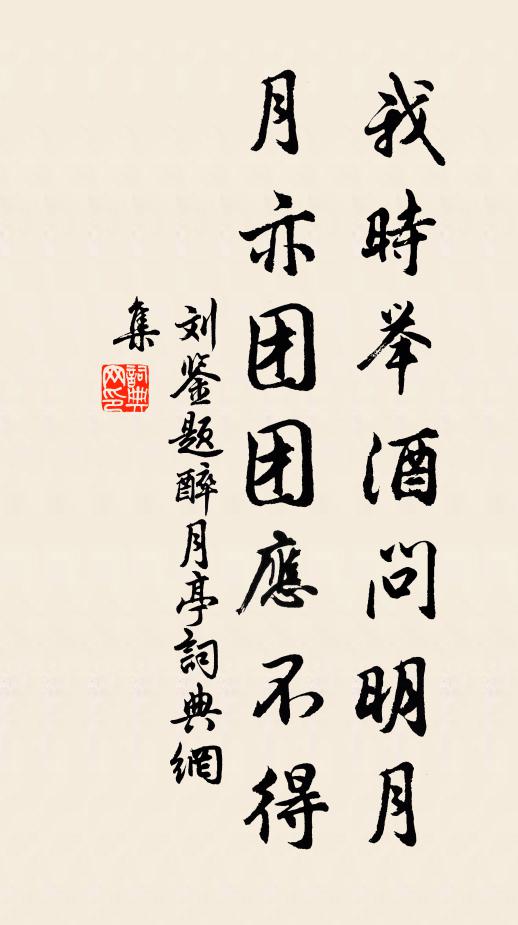 我時举酒問明月
月亦团团應不得
刘鉴題醉月亭詞典網
集
詞典
网印